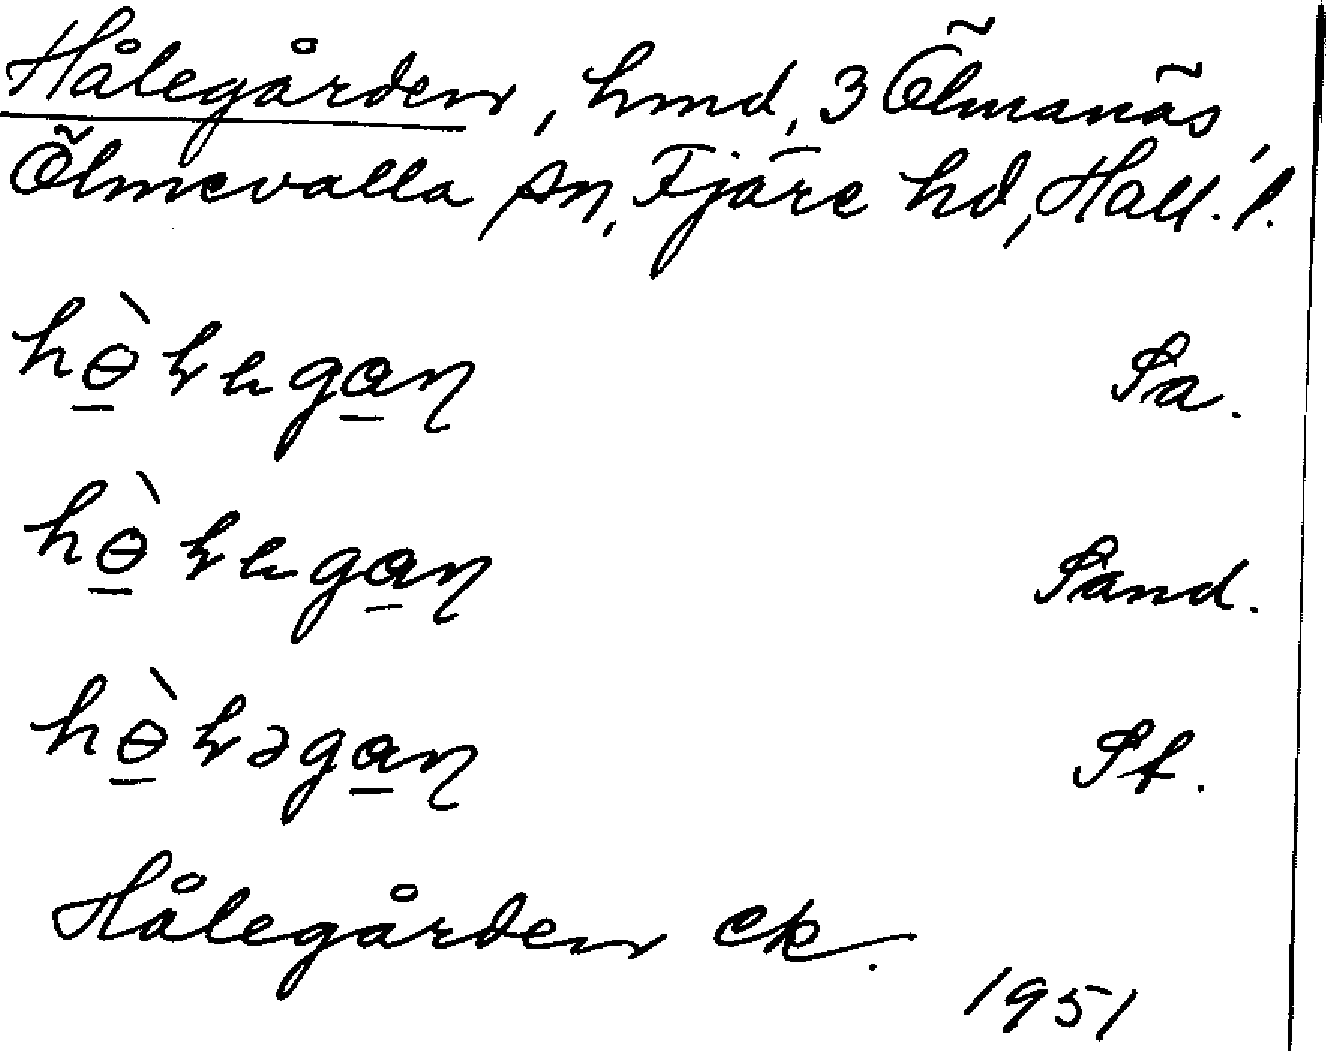 Hålegården, hmd, 3 Ölmanäs,
Ölmevalla sn, Fjäre hd, Hall. l.
hɵ̱̀ɽɐga̱ɳ Sa.
hɵ̱̀ɽɐga̱ɳ Sand.
hɵ̱̀ɽəga̱ɳ St.
Hålegården ek.
1951